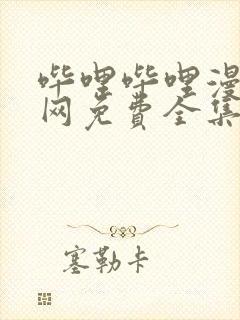 哔哩哔哩漫
网免费全集
塞勒卡